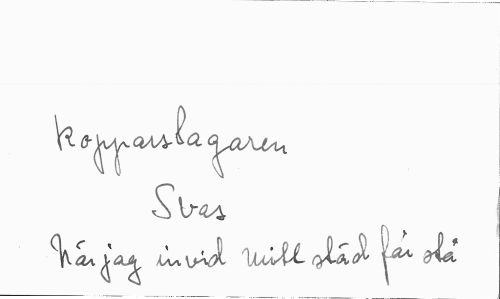 Kopparslagaren
Svas
När jag invid mitt städ får stå